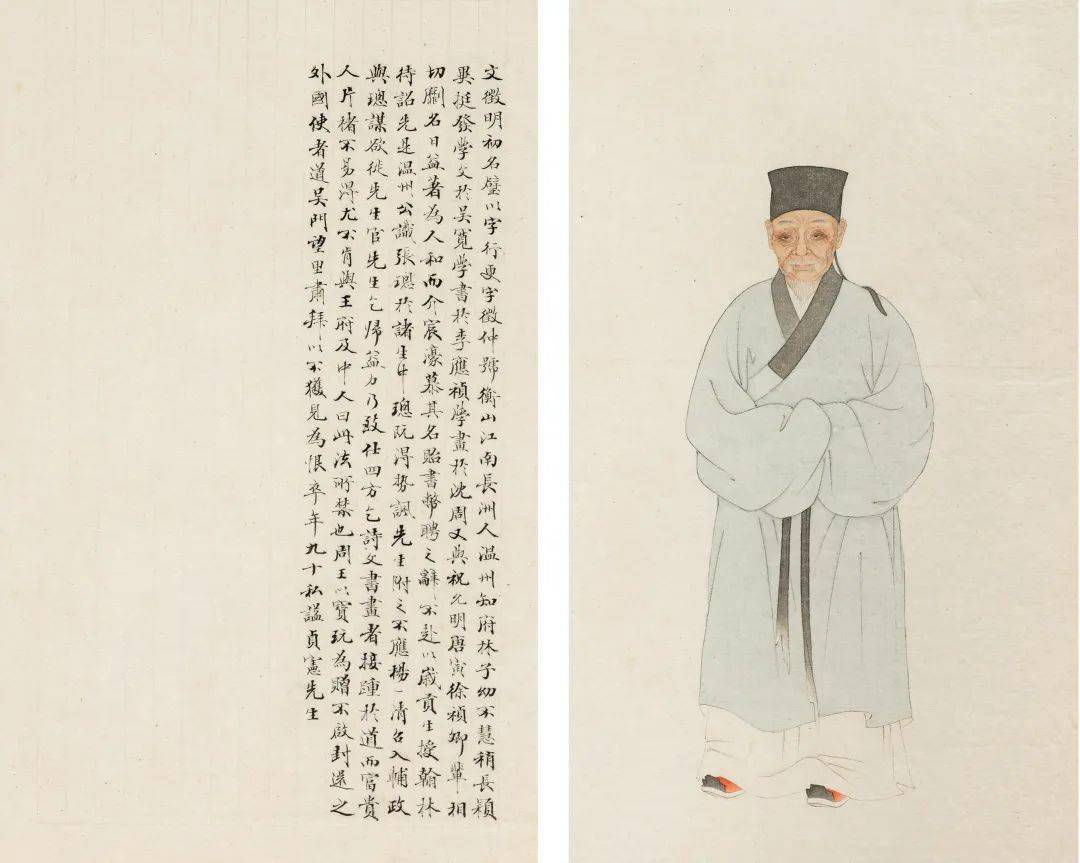 文徵明初名璧以字行更字徵仲號衡山江南長洲人温州知府林子幼不慧稍長穎
異挺發學文於吴寬學書於李應禎學畫於沈周又與祝允明唐寅徐禎卿輩相
切劘名日益著為人和而介宸濠慕其名貽書幣聘之辭不赴以歲貢生授翰林
待詔先是温州公識張璁於諸生中璁既得勢諷先生附之不應楊一清召入輔政
與璁謀欲徙先生官先生乞歸益力乃致仕四方乞詩文書畫者接踵於道而富貴
人片楮不易得尤不肯與王府及中人曰此法所禁也周王以寶玩為贈不啟封還之
外國使者道吴門望里肅拜以不獲見為恨卒年九十私謚貞憲先生